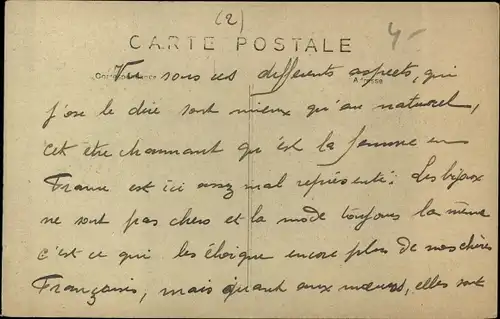 (2)
4-
CARTE POSTALE
Correspondance
Adresse
Vu sous ces différents aspects, qui
j'ose le dire sont mieux qu'au naturel,
cet être charmant qu'est la femme en
France est ici assez mal représenté: les bijoux
ne sont pas chers et la mode toujours la même
c'est ce qui les éloigne encore plus de nos chères
Françaises, mais quant aux mœurs, elles sont